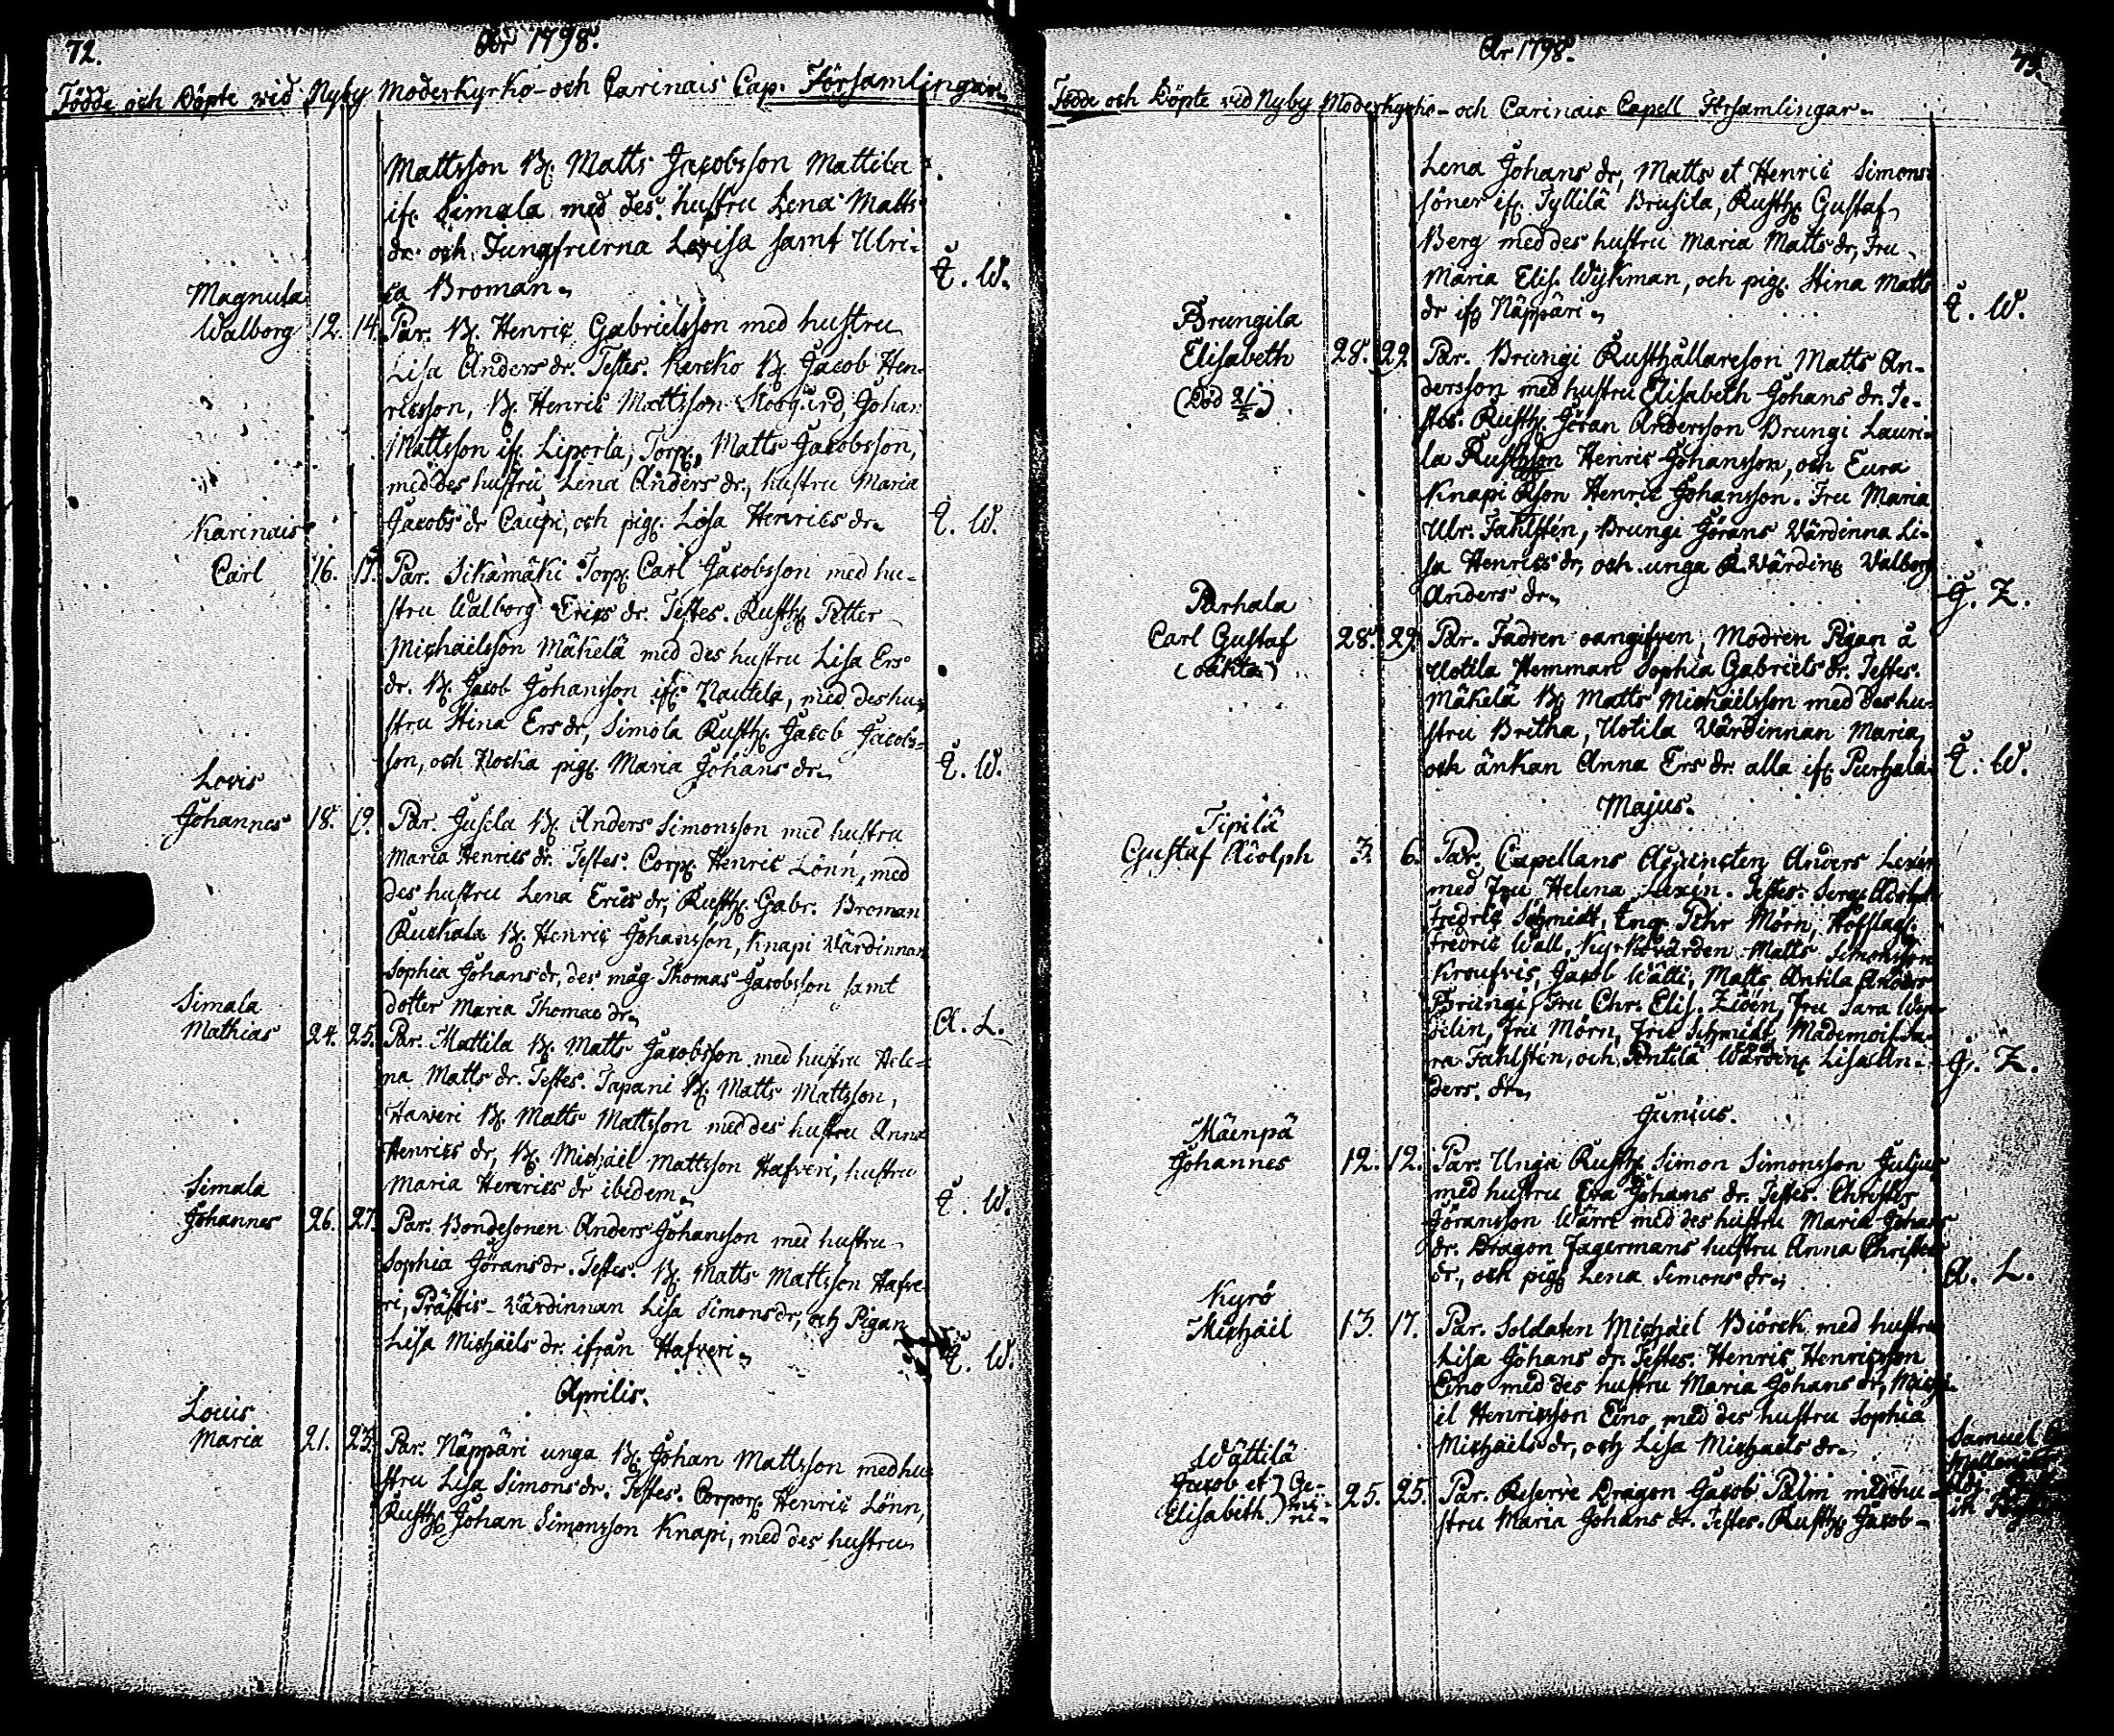 72.
År 1798.
Födde och Döpte vid Nyby Moderkyrko- och Carinais Cap. Församlingar.
Mattsson B. Matts Jacobsson Mattila
if. Simala med des hustru Lena Matts
dr. och Jungfruerna Lovisa samt Ulri-
ca Broman.
E. W.
Magnula
Walborg 12. 14. Par. B. Henric Gabrielsson med hustru
Lisa Anders dr. Testes. Kercko B. Jacob Hen-
ricsson, B. Henric Mattsson Skogård, Johan
Mattsson if. Liperla, Torp. Matts Jacobsson,
med des hustru Lena Anders dr., hustru Maria
Jacobs dr Caupi, och pig. Lisa Henrics dr.
E. W.
Karinais
Carl 16. 17. Par. Sikamäki Torp. Carl Jacobsson med hu-
stru Walborg Erics dr. Testes. Rusth. Petter
Michaelsson Mäkelä med des hustru Lisa Ers
dr. B. Jacob Johansson if. Nautela, med des hu-
stru Stina Ers dr, Simola Rusth. Jacob Jacobs-
son, och Kocka pig. Maria Johans dr.
E. W.
Lovis
Johannes 18. 19. Par. Jusila B. Anders Simonsson med hustru
Maria Henrics dr. Testes. Corp. Henric Lönn, med
des hustru Lena Erics dr, Rusth. Gabr. Broman
Ruskala B. Henric Johansson, Knapi värdinnan
Sophia Johans dr, des måg Thomas Jacobsson samt
dotter Maria Thomae dr.
A. L.
Simala
Mathias 24. 25. Par. Mattila B. Matts Jacobsson med hustru Hele-
na Matts dr. Testes. Tapani B. Matts Mattsson,
Haweri B. Matts Mattsson med des hustru Anna
Henrics dr, B. Michaël Mattsson Hafveri, hustru
Maria Henrics dr ibidem.
E. W.
Simala
Johannes 26. 27. Par. Bondesonen Anders Johansson med hustru
Sophia Jörans dr. Testes. B. Matts Mattsson Hafve-
ri, Prästis-Värdinnan Lisa Simons dr, och Pigan
Lisa Michaëls dr. ifrån Hafveri.
E. W.
Aprilis.
Louis
Maria 21. 23. Par. Näppäri unga B. Johan Mattsson med hu-
stru Lisa Simons dr. Testes. Corpor. Henric Lönn,
Rusth. Johan Simonsson Knapi, med des hustru
År 1798.
73.
Födde och Döpte vid Nyby Moderkyrko- och Carinais Capell Församlingar.
Lena Johans dr, Matts et Henric Simons-
söner if. Tyllilä Brusila, Rusth. Gustaf
Berg med des hustru Maria Matts dr, Fru
Maria Elis. Wykman, och pig. Stina Matts
dr if. Näppäri.
E. W.
Brungila
Elisabeth 28. 29. Par. Brungi Rusthållareson Matts An-
(Död 21/5) dersson med hustru Elisabeth Johans dr. Te-
stes. Rusth. Jöran Andersson Brungi Lauri-
la Rusthson Henric Johansson, och Eura
Knapi Rson Henric Johansson. Fru Maria
Ulr. Fahlstén, Brungi Jörans Värdinna Li-
sa Henrics dr, och unga R. Värdin. Walborg
Anders dr.
G. Z.
Parhala
Carl Gustaf 28. 29. Par. Fadren oangifven, Modren Pigan å
(oäkta) Uotila Hemman Sophia Gabriels dr. Testes.
Mäkelä B. Matts Michaëlsson med des hu-
stru Britha, Uotila Värdinnan Maria,
och änkan Anna Ers dr. alla if. Purhala.
E. W.
Majus.
Tipilä
Gustaf Adolph 3. 6. Par. Capellans Adjuncten Anders Lexén
med Fru Helena Lexén. Testes. Serg. Adolph
Fredric Schmidt, Eng. Pehr Mörn, Hofslag.
Fredric Wall, Kyrkovärden Matts Simonsson
Kroufvis, Jacob Wätti, Matts Antila Anders
Brungi, Fru Chr. Elis. Zidén, Fru Sara
Fru Mörn, Fru Schmidt, Mademois. Sa-
ra Fahlstén, och Pentilä Wärdin. Lisa An-
ders. dr.
G. Z.
Junius.
Mäenpä
Johannes 12. 12. Par. Unga Rusth. Simon Simonsson Juljus
med hustru Eva Johans dr. Testes. Christer
Jöransson Wärri med des hustru Maria Johans
dr. Dragon Jagermans hustru Anna Christers
dr., och pig. Lena Simons dr.
A. L.
Kyrö
Michaël 13. 17. Par. Soldaten Michaël Biörck med hustru
Lisa Johans dr. Testes. Henric Henricsson
Eino med des hustru Maria Johans dr, Micha-
el Henricsson Eino, med des hustru Sophia
Michaels dr, och Lisa Michaels dr.
Samuel
Wättilä
Jacob et } Ge-
Elisabeth } mi-ni- 25. 25. Par. Reserve Dragon Jacob Palm med hu-
stru Maria Johans dr. Testes. Rusth. Jacob